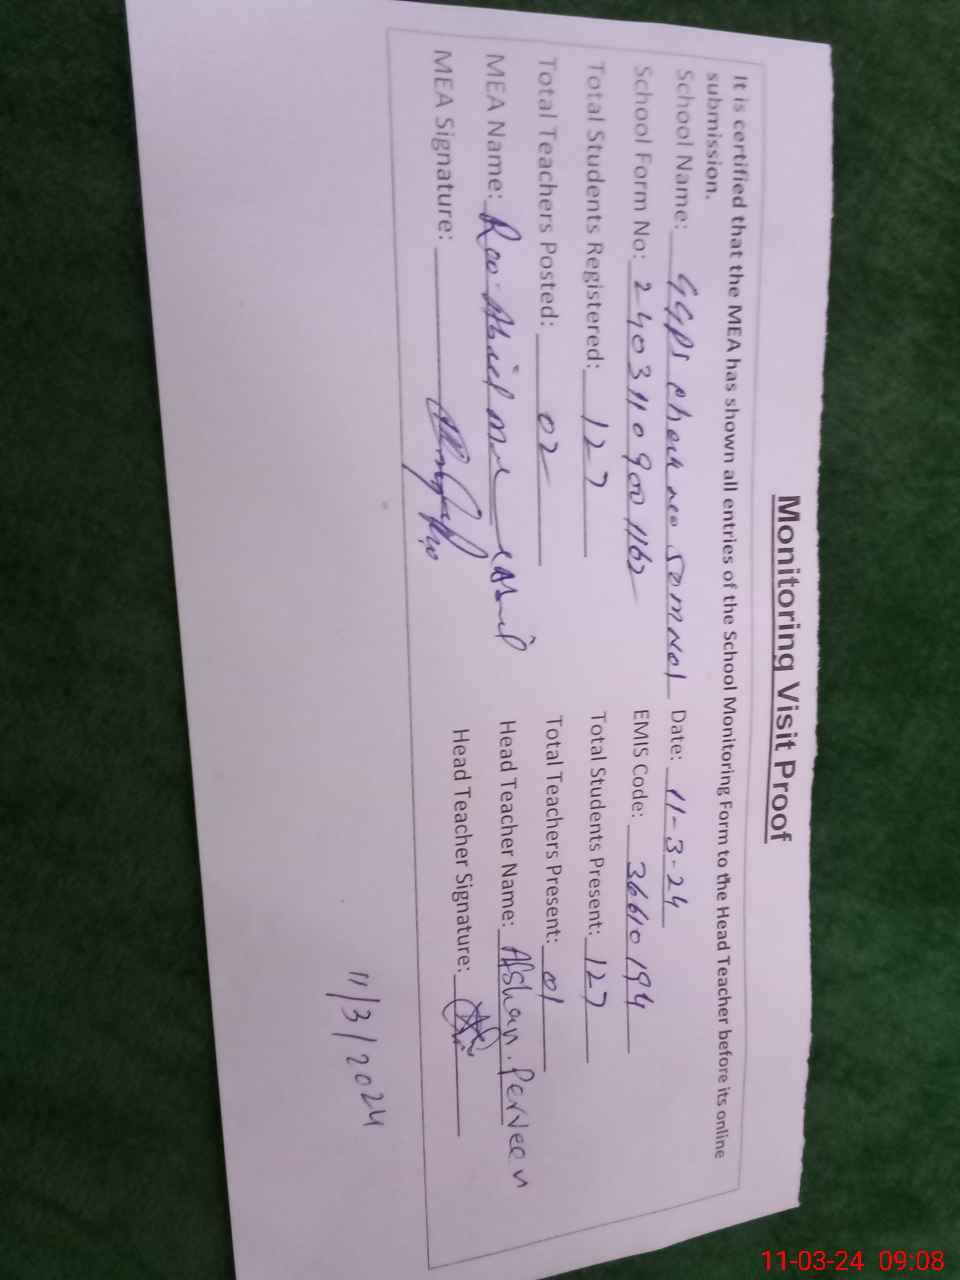 Monitoring Visit Proof
It is certified that the MEA has shown all entries of the School Monitoring Form to the Head Teacher before its online
submission.
School Name: GGPS Date: 11-3-24
School Form No: 24031109001162 EMIS Code: 36610194
Total Students Registered: 127 Total Students Present: 127
Total Teachers Posted: 02 Total Teachers Present: 01
MEA Name: Rao Head Teacher Name: Afshan Perveen
MEA Signature: Head Teacher Signature:
11/3/2024
11-03-24 09:08